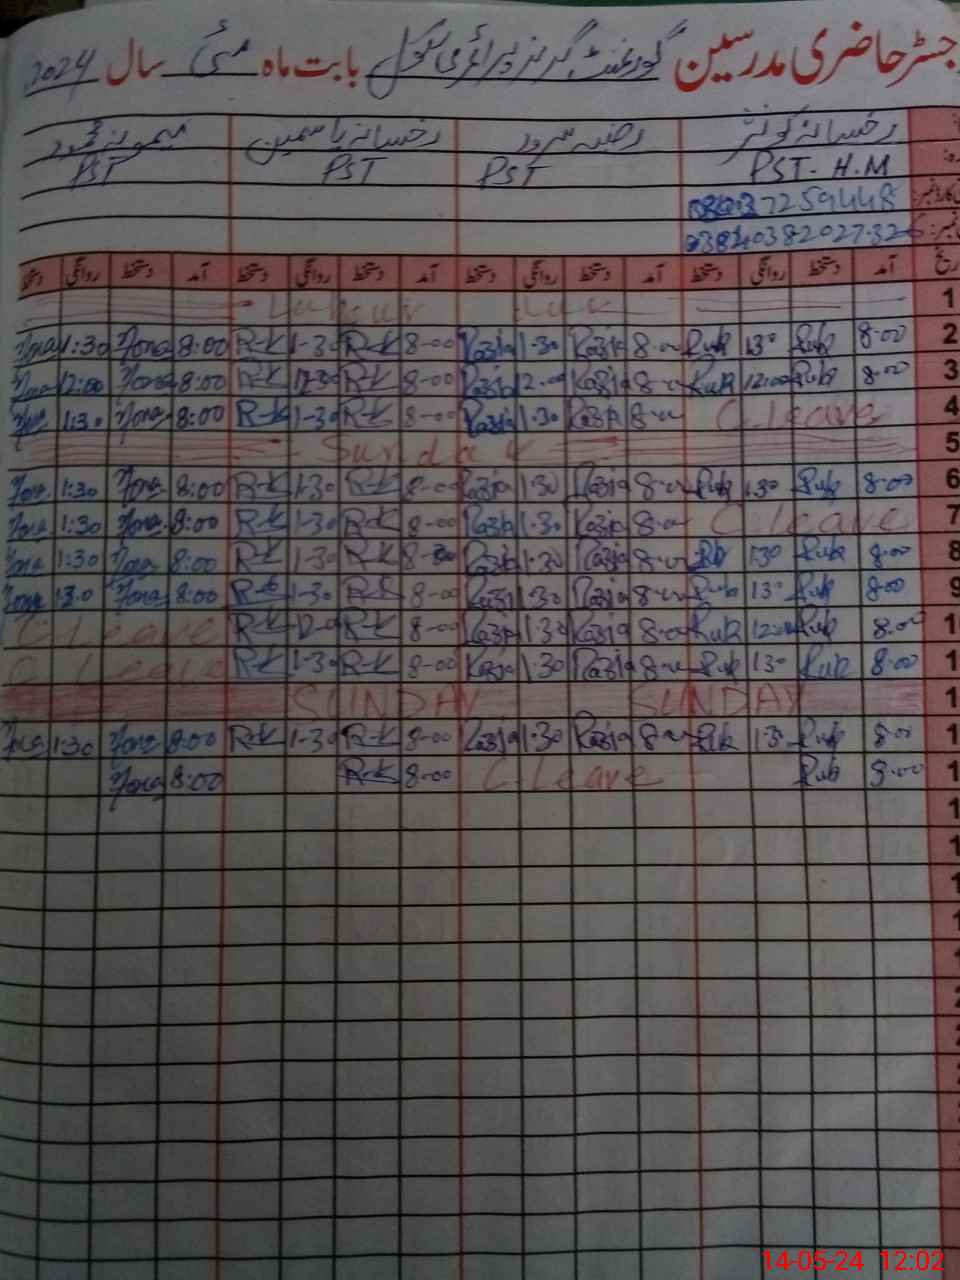 رجسٹر حاضری مدرسین گورنمنٹ گرلز پرائمری سکول بابت ماہ مئی سال 2024
رخسانہ کوثر رضیہ سرور رخسانہ یاسمین میمونہ محمود
PST-H.M PST PST PST
تاریخ آمد دستخط روانگی دستخط آمد دستخط روانگی دستخط آمد دستخط روانگی دستخط آمد دستخط روانگی دستخط
1 Labour
2 8.00 Rub 1.30 Rub 8.00 Razia 1.30 Razia 8-00 R-K 1-30 R-K 8:00 Mona 1:30 Mona
3 8.00 Rub 12:00 Rub 8.00 Razia 12.00 Razia 8-00 R-K 12-30 R-K 8:00 Mona 12:00 Mona
4 C.Leave 8.00 Razia 1.30 Razia 8-00 R-K 1-30 R-K 8:00 Mona 1:30 Mona
5 Sunday
6 8.00 Rub 1.30 Rub 8.00 Razia 1.30 Razia 8-00 R-K 1-30 R-K 8:00 Mona 1:30 Mona
7 C.Leave 8.00 Razia 1.30 Razia 8-00 R-K 1-30 R-K 8:00 Mona 1:30 Mona
8 8.00 Rub 1.30 Rub 8.00 Razia 1.30 Razia 8-00 R-K 1-30 R-K 8:00 Mona 1:30 Mona
9 8.00 Rub 1.30 Rub 8.00 Razia 1.30 Razia 8-00 R-K 1-30 R-K 8:00 Mona 1:30 Mona
1 8.00 Rub 12:00 Rub 8.00 Razia 1.30 Razia 8-00 R-K 12-0 R-K C Leave
1 8.00 Rub 1.30 Rub 8.00 Razia 1.30 Razia 8-00 R-K 1-30 R-K C Leave
1 SUNDAY SUNDAY
1 8.00 Rub 1.30 Rub 8.00 Razia 1.30 Razia 8-00 R-K 1-30 R-K 8:00 Mona 1:30 Mona
1 8.00 Rub C.Leave 8-00 R-K 8:00 Mona
14-05-24 12:02